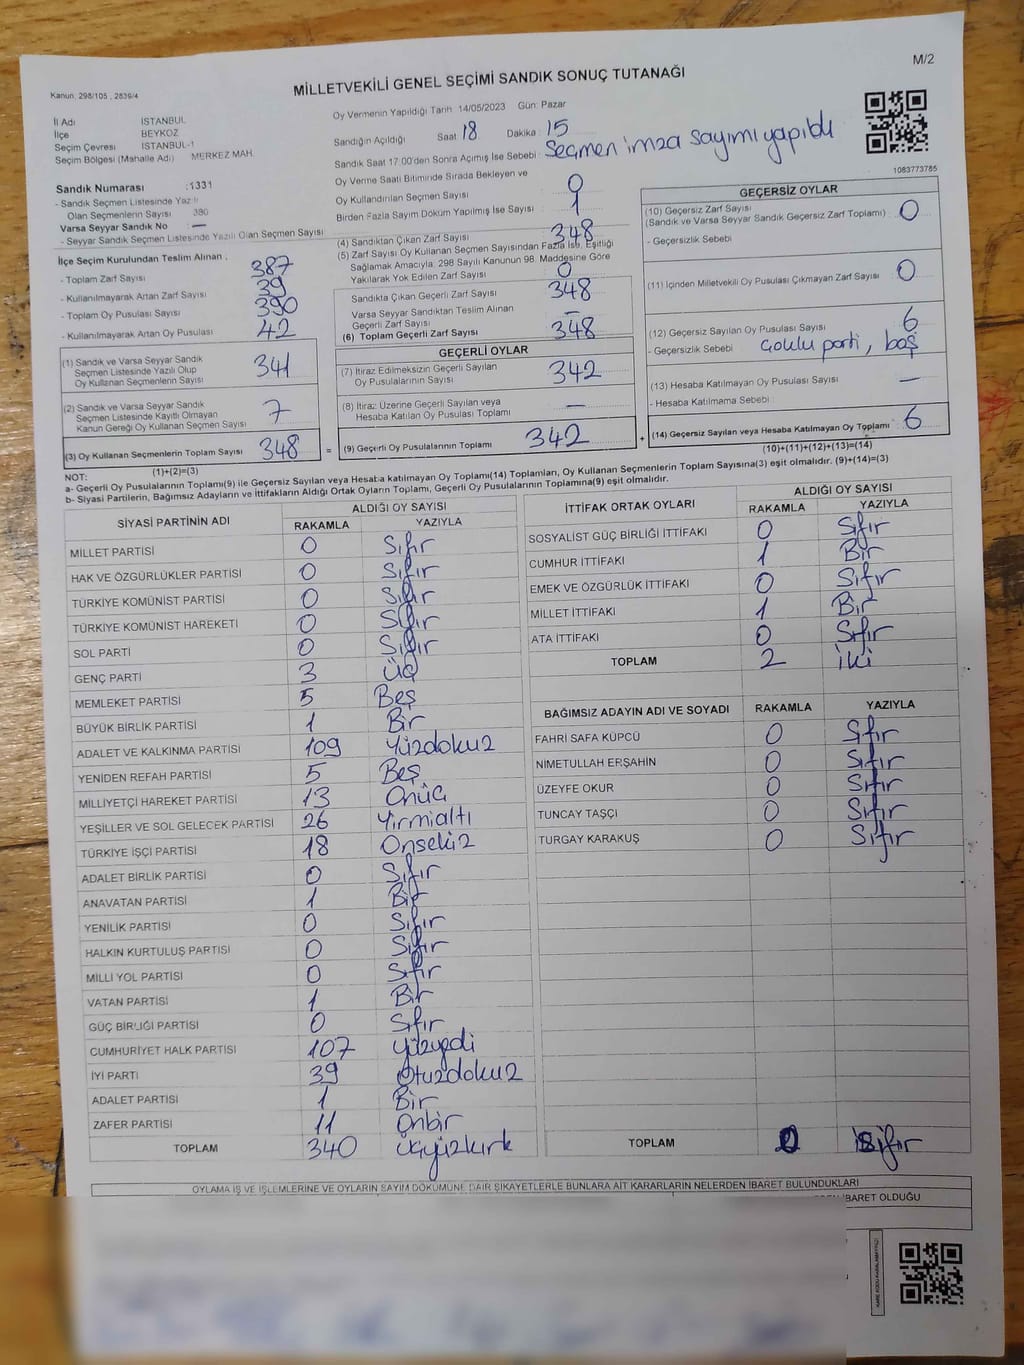 M/2
Kanun: 298/105 , 2839/4
MİLLETVEKİLİ GENEL SEÇİMİ SANDIK SONUÇ TUTANAĞI
İl Adı İSTANBUL
İlçe BEYKOZ
Seçim Çevresi İSTANBUL-1
Seçim Bölgesi (Mahalle Adı) MERKEZ MAH.
Oy Vermenin Yapıldığı Tarih: 14/05/2023 Gün: Pazar
Sandığın Açıldığı Saat 18 Dakika : 15
Sandık Saat 17:00'den Sonra Açılmış İse Sebebi : Seçmen imza sayımı yapıldı
1083773785
Sandık Numarası :1331
- Sandık Seçmen Listesinde Yazılı
Olan Seçmenlerin Sayısı 380
Varsa Seyyar Sandık No —
- Seyyar Sandık Seçmen Listesinde Yazılı Olan Seçmen Sayısı
İlçe Seçim Kurulundan Teslim Alınan :
- Toplam Zarf Sayısı 387
- Kullanılmayarak Artan Zarf Sayısı 39
- Toplam Oy Pusulası Sayısı 390
- Kullanılmayarak Artan Oy Pusulası 42
(1) Sandık ve Varsa Seyyar Sandık
Seçmen Listesinde Yazılı Olup
Oy Kullanan Seçmenlerin Sayısı 341
(2) Sandık ve Varsa Seyyar Sandık
Seçmen Listesinde Kayıtlı Olmayan
Kanun Gereği Oy Kullanan Seçmen Sayısı 7
(3) Oy Kullanan Seçmenlerin Toplam Sayısı 348 =
(1)+(2)=(3)
Oy Verme Saati Bitiminde Sırada Bekleyen ve
Oy Kullandırılan Seçmen Sayısı 0
Birden Fazla Sayım Döküm Yapılmış İse Sayısı : 1
(4) Sandıktan Çıkan Zarf Sayısı 348
(5) Zarf Sayısı Oy Kullanan Seçmen Sayısından Fazla İse, Eşitliği
Sağlamak Amacıyla; 298 Sayılı Kanunun 98. Maddesine Göre
Yakılarak Yok Edilen Zarf Sayısı 0
Sandıkta Çıkan Geçerli Zarf Sayısı 348
Varsa Seyyar Sandıktan Teslim Alınan
Geçerli Zarf Sayısı —
(6) Toplam Geçerli Zarf Sayısı 348
GEÇERLİ OYLAR
(7) İtiraz Edilmeksizin Geçerli Sayılan
Oy Pusulalarının Sayısı 342
(8) İtiraz Üzerine Geçerli Sayılan veya
Hesaba Katılan Oy Pusulası Toplamı —
(9) Geçerli Oy Pusulalarının Toplamı 342 +
GEÇERSİZ OYLAR
(10) Geçersiz Zarf Sayısı
(Sandık ve Varsa Seyyar Sandık Geçersiz Zarf Toplamı) 0
- Geçersizlik Sebebi
(11) İçinden Milletvekili Oy Pusulası Çıkmayan Zarf Sayısı 0
(12) Geçersiz Sayılan Oy Pusulası Sayısı 6
- Geçersizlik Sebebi çoklu parti, boş
(13) Hesaba Katılmayan Oy Pusulası Sayısı —
- Hesaba Katılmama Sebebi
(14) Geçersiz Sayılan veya Hesaba Katılmayan Oy Toplamı : 6
(10)+(11)+(12)+(13)=(14)
NOT:
a- Geçerli Oy Pusulalarının Toplamı(9) ile Geçersiz Sayılan veya Hesaba katılmayan Oy Toplamı(14) Toplamları, Oy Kullanan Seçmenlerin Toplam Sayısına(3) eşit olmalıdır. (9)+(14)=(3)
b- Siyasi Partilerin, Bağımsız Adayların ve İttifakların Aldığı Ortak Oyların Toplamı, Geçerli Oy Pusulalarının Toplamına(9) eşit olmalıdır.
SİYASİ PARTİNİN ADI ALDIĞI OY SAYISI
RAKAMLA YAZIYLA
MİLLET PARTİSİ 0 Sıfır
HAK VE ÖZGÜRLÜKLER PARTİSİ 0 Sıfır
TÜRKİYE KOMÜNİST PARTİSİ 0 Sıfır
TÜRKİYE KOMÜNİST HAREKETİ 0 Sıfır
SOL PARTİ 0 Sıfır
GENÇ PARTİ 3 Üç
MEMLEKET PARTİSİ 5 Beş
BÜYÜK BİRLİK PARTİSİ 1 Bir
ADALET VE KALKINMA PARTİSİ 109 Yüzdokuz
YENİDEN REFAH PARTİSİ 5 Beş
MİLLİYETÇİ HAREKET PARTİSİ 13 Onüç
YEŞİLLER VE SOL GELECEK PARTİSİ 26 Yirmialtı
TÜRKİYE İŞÇİ PARTİSİ 18 Onsekiz
ADALET BİRLİK PARTİSİ 0 Sıfır
ANAVATAN PARTİSİ 1 Bir
YENİLİK PARTİSİ 0 Sıfır
HALKIN KURTULUŞ PARTİSİ 0 Sıfır
MİLLİ YOL PARTİSİ 0 Sıfır
VATAN PARTİSİ 1 Bir
GÜÇ BİRLİĞİ PARTİSİ 0 Sıfır
CUMHURİYET HALK PARTİSİ 107 Yüzyedi
İYİ PARTİ 39 Otuzdokuz
ADALET PARTİSİ 1 Bir
ZAFER PARTİSİ 11 Onbir
TOPLAM 340 Üçyüzkırk
İTTİFAK ORTAK OYLARI ALDIĞI OY SAYISI
RAKAMLA YAZIYLA
SOSYALİST GÜÇ BİRLİĞİ İTTİFAKI 0 Sıfır
CUMHUR İTTİFAKI 1 Bir
EMEK VE ÖZGÜRLÜK İTTİFAKI 0 Sıfır
MİLLET İTTİFAKI 1 Bir
ATA İTTİFAKI 0 Sıfır
TOPLAM 2 İki
BAĞIMSIZ ADAYIN ADI VE SOYADI RAKAMLA YAZIYLA
FAHRİ SAFA KÜPCÜ 0 Sıfır
NİMETULLAH ERŞAHİN 0 Sıfır
ÜZEYFE OKUR 0 Sıfır
TUNCAY TAŞÇI 0 Sıfır
TURGAY KARAKUŞ 0 Sıfır
TOPLAM 0 Sıfır
OYLAMA İŞ VE İŞLEMLERİNE VE OYLARIN SAYIM DÖKÜMÜNE DAİR ŞİKAYETLERLE BUNLARA AİT KARARLARIN NELERDEN İBARET BULUNDUKLARI
İBARET OLDUĞU